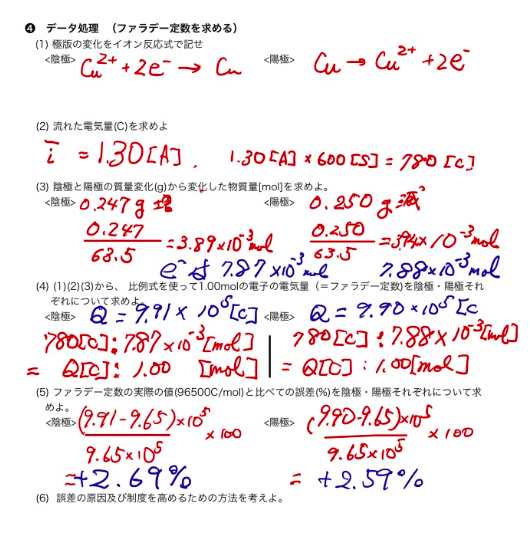 ❹ データ処理 （ファラデー定数を求める）
(1) 極版の変化をイオン反応式で記せ
<陰極> Cu²⁺ + 2e⁻ → Cu <陽極> Cu → Cu²⁺ + 2e⁻
(2) 流れた電気量(C)を求めよ
i = 1.30[A] . 1.30[A] × 600[S] = 780 [C]
(3) 陰極と陽極の質量変化(g)から変化した物質量[mol]を求めよ。
<陰極> 0.247 g 増 <陽極> 0.250 g 減
0.247/63.5 = 3.89×10⁻³ mol 0.250/63.5 = 3.94×10⁻³ mol
e⁻は 7.87×10⁻³ mol 7.88×10⁻³ mol
(4) (1)(2)(3)から、 比例式を使って1.00molの電子の電気量（＝ファラデー定数)を陰極・陽極それ
ぞれについて求めよ。
<陰極> Q = 9.91 × 10⁵[C] <陽極> Q = 9.90 ×10⁵[C
780[C]:7.87×10⁻³[mol] 780[C]:7.88×10⁻³[mol]
= Q[C] : 1.00 [mol] = Q[C] : 1.00[mol]
(5) ファラデー定数の実際の値(96500C/mol)と比べての誤差(%)を陰極・陽極それぞれについて求
めよ。
<陰極> (9.91-9.65)×10⁵/9.65×10⁵ ×100 <陽極> (9.90-9.65)×10⁵/9.65×10⁵ ×100
=+2.69% = +2.59%
(6) 誤差の原因及び制度を高めるための方法を考えよ。